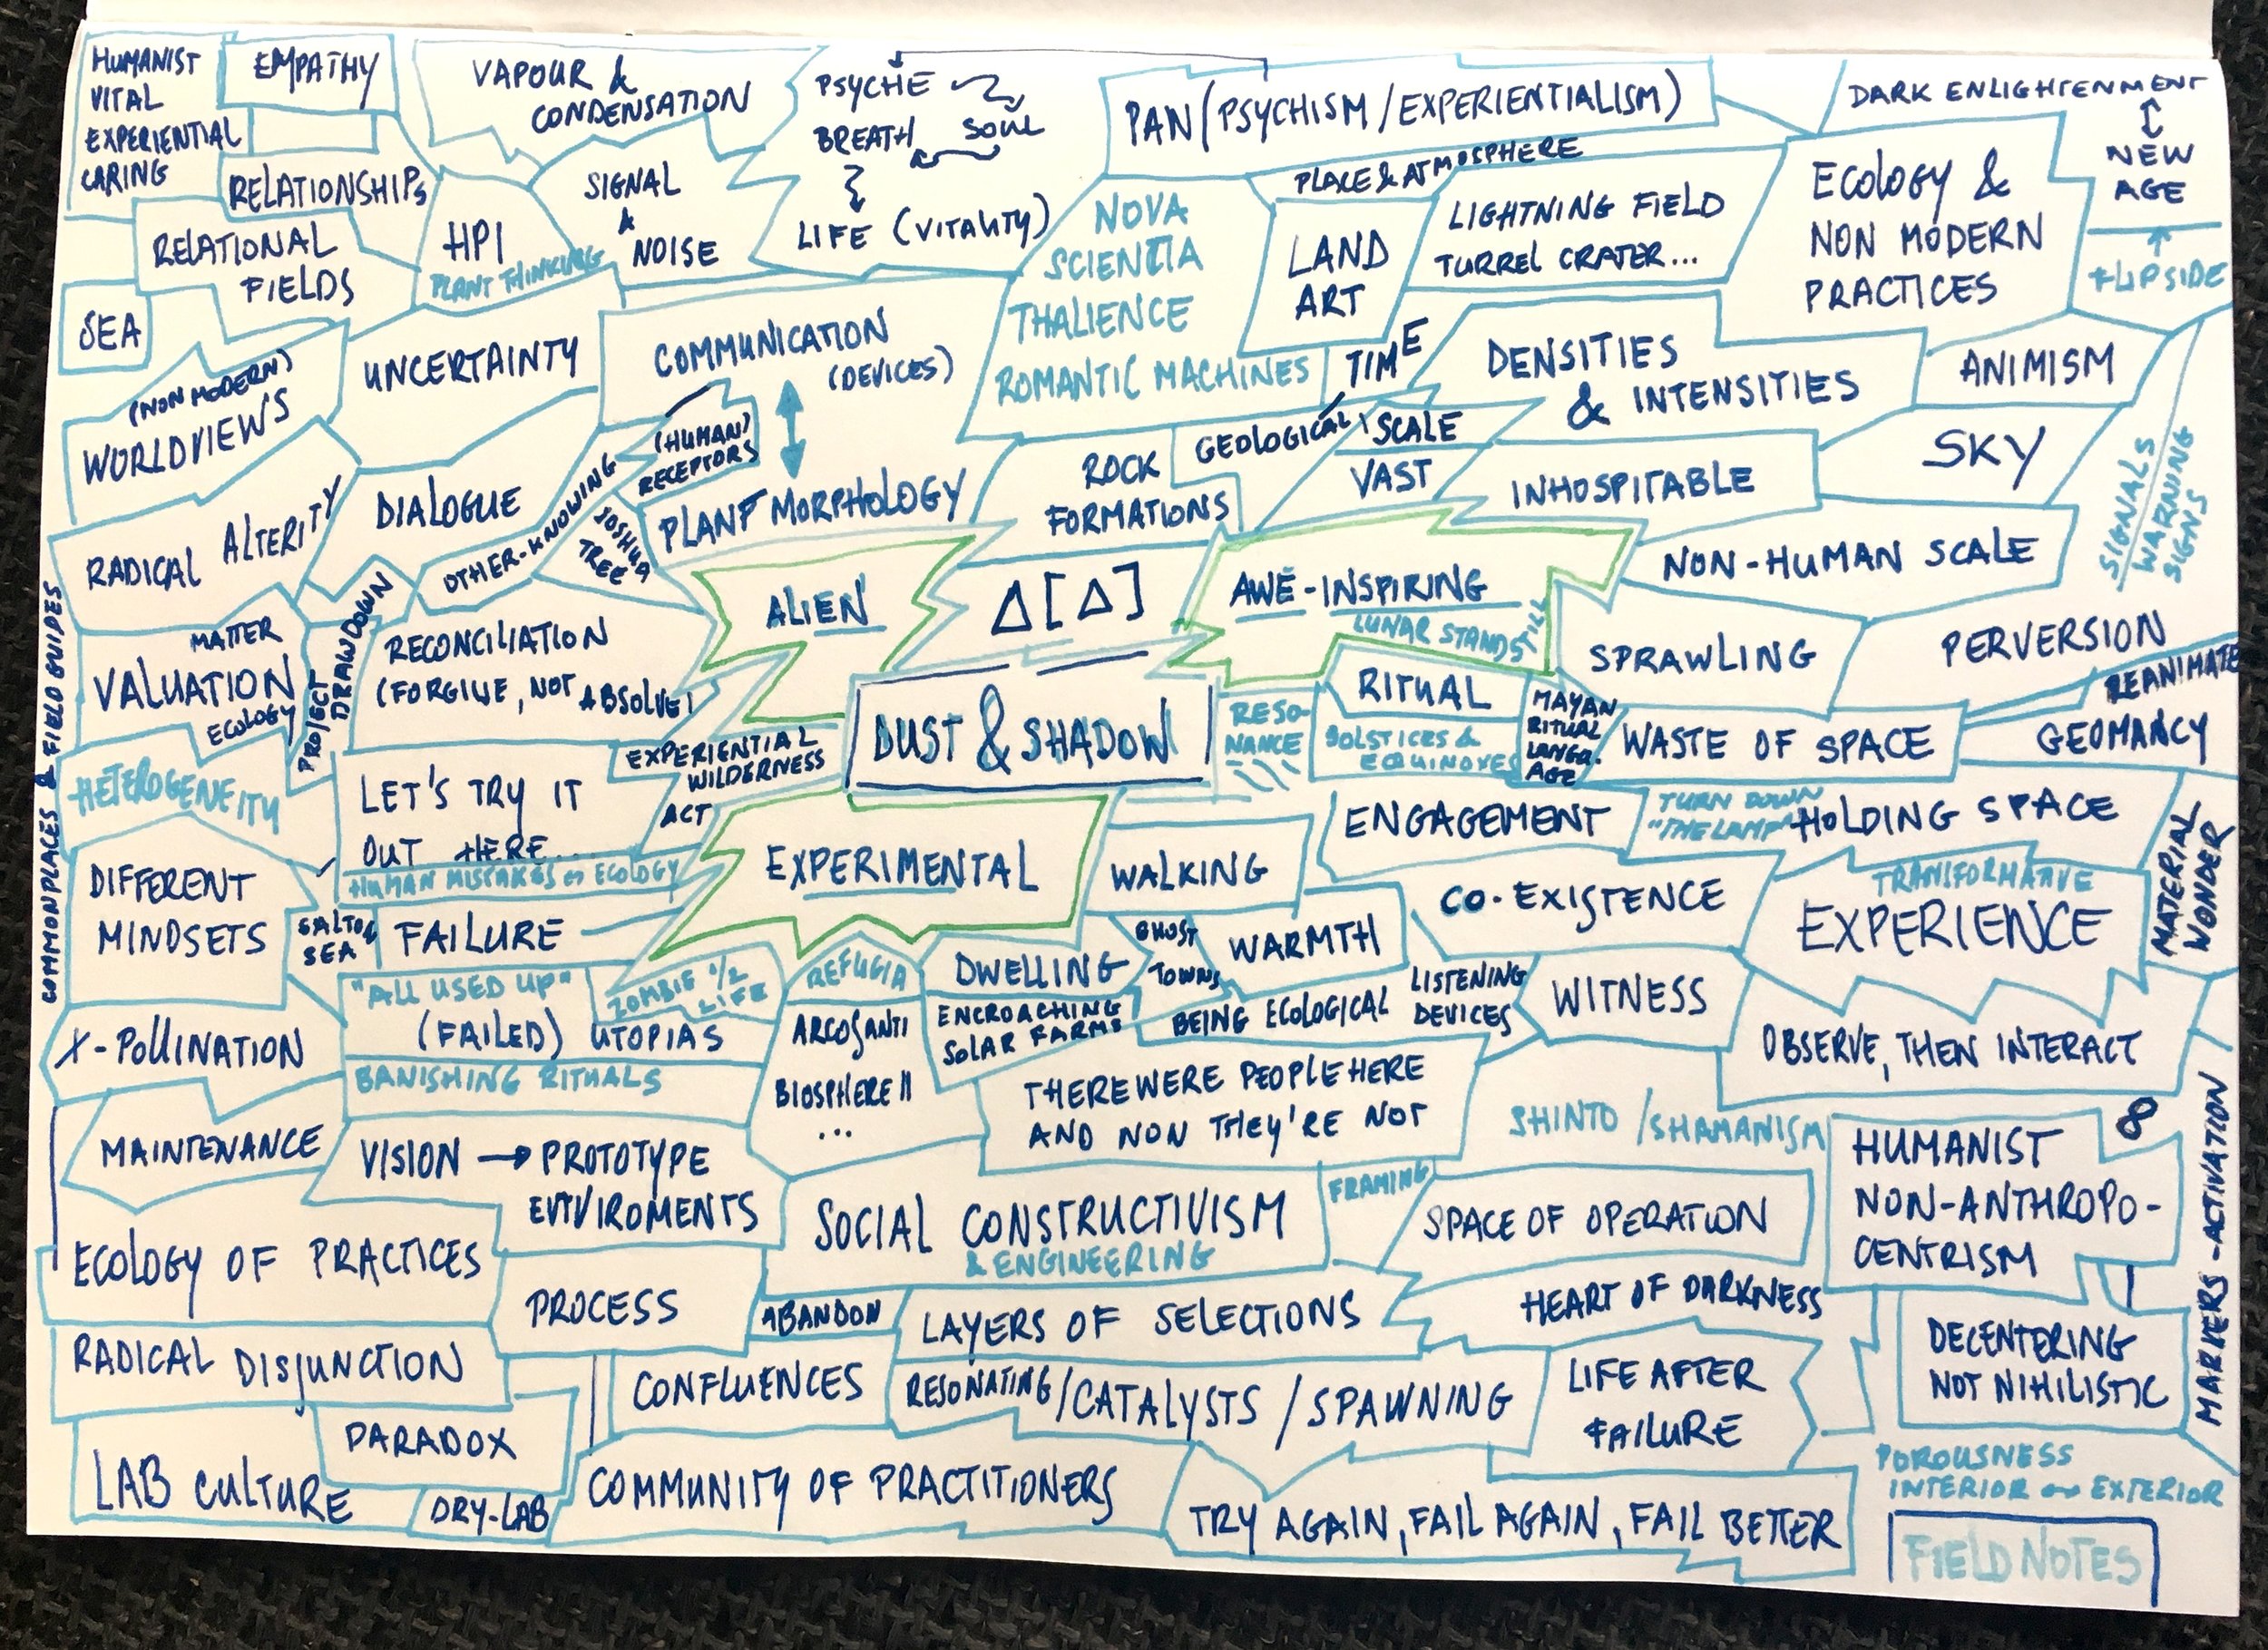 HUMANIST
VITAL
EXPERIENTIAL
CARING
EMPATHY
RELATIONSHIPS
VAPOUR &
CONDENSATION
PSYCHE
BREATH SOUL
LIFE (VITALITY)
PAN(PSYCHISM/EXPERIENTIALISM)
DARK ENLIGHTENMENT
NEW
AGE
FLIPSIDE
RELATIONAL
FIELDS
HPI
PLANT THINKING
SIGNAL
&
NOISE
NOVA
SCIENTIA
THALIENCE
ROMANTIC MACHINES
PLACE & ATMOSPHERE
LAND
ART
LIGHTNING FIELD
TURREL CRATER...
ECOLOGY &
NON MODERN
PRACTICES
SEA
(NON MODERN)
WORLDVIEWS
UNCERTAINTY
COMMUNICATION
(DEVICES)
(HUMAN)
RECEPTORS
PLANT MORPHOLOGY
TIME
GEOLOGICAL
SCALE
VAST
DENSITIES
& INTENSITIES
ANIMISM
SKY
SIGNALS
WARNING
SIGNS
RADICAL ALTERITY
DIALOGUE
OTHER-KNOWING
JOSHUA
TREE
ROCK
FORMATIONS
INHOSPITABLE
NON-HUMAN SCALE
ALIEN
Δ[Δ]
AWE-INSPIRING
LUNAR STANDSTILL
SPRAWLING
PERVERSION
REANIMATE
GEOMANCY
COMMONPLACES & FIELD GUIDES
MATTER
VALUATION
ECOLOGY
PROJECT
DRAWDOWN
RECONCILIATION
(FORGIVE, NOT ABSOLVE)
EXPERIENTIAL
WILDERNESS
DUST & SHADOW
RESO-
NANCE
RITUAL
SOLSTICES &
EQUINOXES
MAYAN
RITUAL
LANGU-
AGE
WASTE OF SPACE
HETEROGENEITY
LET'S TRY IT
OUT HERE...
ACT
HUMAN MISTAKES
ECOLOGY
EXPERIMENTAL
WALKING
ENGAGEMENT
TURN DOWN
"THE LAMP"
HOLDING SPACE
MATERIAL
WONDER
DIFFERENT
MINDSETS
SALTON
SEA
FAILURE
"ALL USED UP"
(FAILED) UTOPIAS
ZOMBIE 1/2
LIFE
REFUGIA
ARCOSANTI
BIOSPHERE II
...
DWELLING
ENCROACHING
SOLAR FARMS
GHOST
TOWNS
WARMTH
BEING ECOLOGICAL
LISTENING
DEVICES
CO-EXISTENCE
WITNESS
TRANSFORMATIVE
EXPERIENCE
OBSERVE, THEN INTERACT
X-POLLINATION
BANISHING RITUALS
THERE WERE PEOPLE HERE
AND NON THEY'RE NOT
SHINTO/SHAMANISM
MAINTENANCE
VISION → PROTOTYPE
ENVIROMENTS
SOCIAL CONSTRUCTIVISM
& ENGINEERING
FRAMING
SPACE OF OPERATION
8
HUMANIST
NON-ANTHROPO-
CENTRISM
MARKERS-ACTIVATION
ECOLOGY OF PRACTICES
PROCESS
ABANDON
LAYERS OF SELECTIONS
HEART OF DARKNESS
DECENTERING
NOT NIHILISTIC
RADICAL DISJUNCTION
CONFLUENCES
RESONATING/CATALYSTS/SPAWNING
LIFE AFTER
FAILURE
PARADOX
LAB CULTURE
DRY-LAB
COMMUNITY OF PRACTITIONERS
TRY AGAIN, FAIL AGAIN, FAIL BETTER
POROUSNESS
INTERIOR EXTERIOR
FIELD NOTES